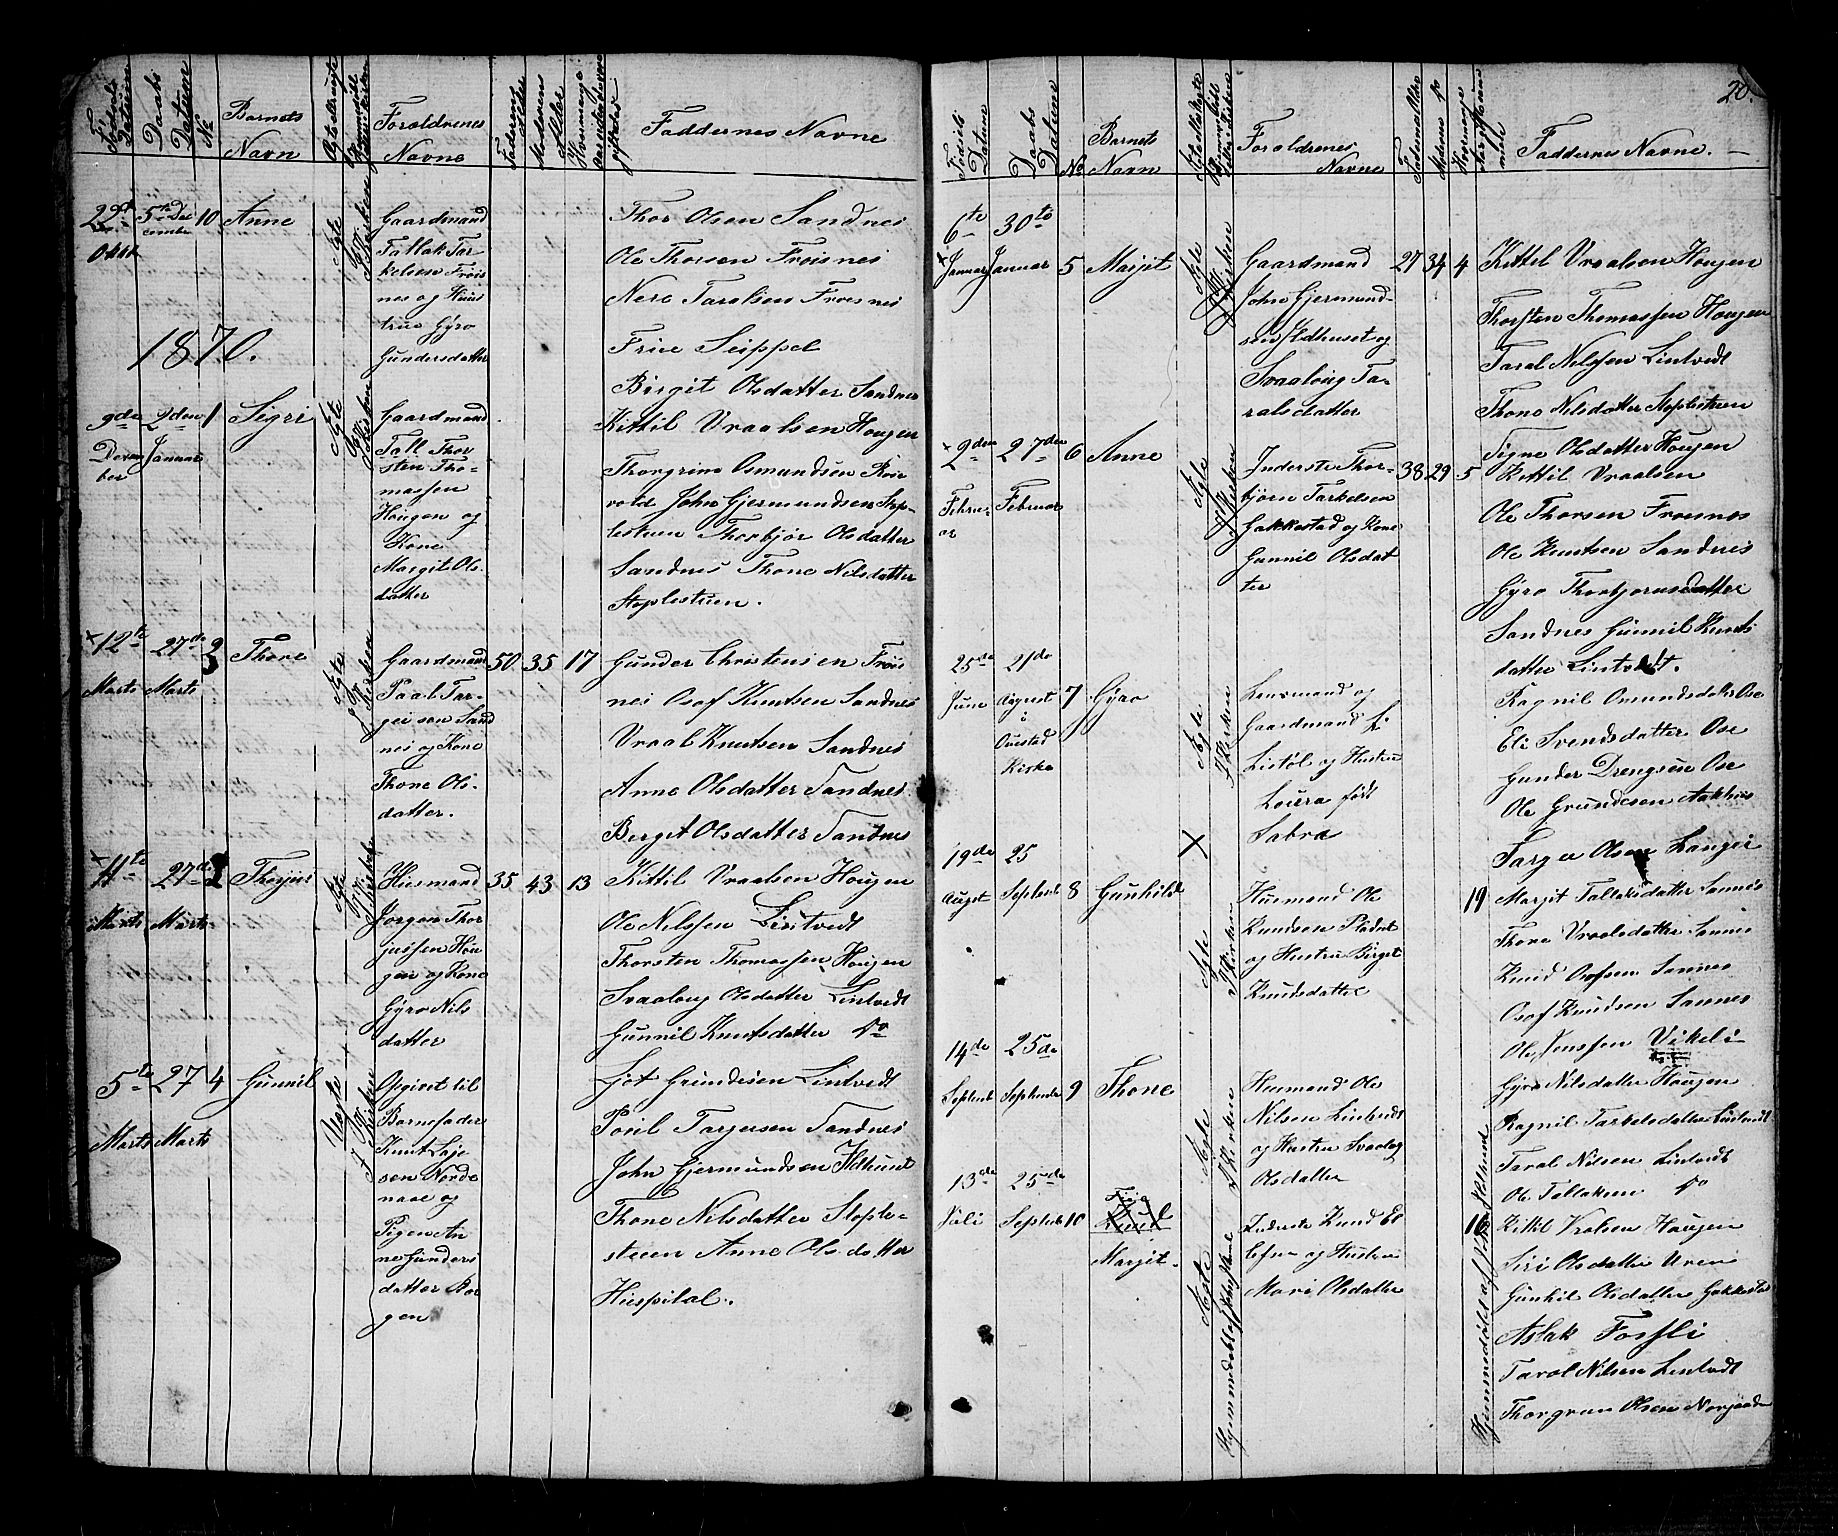 Fødsels Datum
Daabs Datum
No
Barnets Navn
Forældrenes Navne
Faderens Alder
Moderens Alder
Faddernes Navne
22de Oktbr
5te December
10
Anne
Ægte
I Kirken
Gaardmand
Tallak Tar-
kelsen Frøis
nes og Hus
true Gyro
Gundersdatter
Thor Olsen Sandnes
Ole Thorsen Frøisnes
Nere Taralsen Froisnes
Frue Seippel
Birgit Olsdatter Sandnes
1870.
9de Decem
ber
2den Januar
1
Sigri
Ægte
I Kirken
Gaardmand
Tall Thor
sten Tho-
massen
Hougen og
Kone
Margit Ols
datter
Kittil Vraalsen Hougen
Thorgrim Osmundsen
John Gjermundsen Stop-
lestuen Thorbjør Olsdatter
Sandnes Thone Nilsdatter
Stoplestuen.
12te Marts
27de Marts
Thore
Ægte
I Kirken
Gaardmand
Paal Tar-
geisøn Sand
nes og Kone
Thone Ols
datter.
50
35
17
Gunder Christensen Frøis
nes Osof Knutsen Sandnes
Vraal Knutsen Sandnes
Anne Olsdatter Sandnes
Berget Olsdatter Sandnes
11te Marts
27de Marts
Thorjus
Ægte
Husmand
Jørgen Thor
jussen Hou
gen og Kone
Gyro Nils
datter
35
43
13
Kittil Vraalsen Hougen
Ole Nilssen Lintvedt
Thorsten Thomassen Hougen
Svaalaug Olsdatter Lintvedt
Gunnil Knutsdatter do
5te Marts
27 Marts
4
Gunnil
Uægte
I Kirken
Opgivet til
Barnefader
Knut Laje
sen Norde
naae og
Pigen An
ne Gunders
datter Har
gen
Grundesen Lintvedt
Poul Targersen Sandnes
John Gjermundsen Ildhuset
Thone Nilsdatter Stople-
stuen Anne Olsdatter
Hospital.
20.
Fødsels Datum
Daabs Datum
No
Barnets Navn
Forældrenes Navne
Faderens Alder
Moderens do
Faddernes Navne.
6te Januar
30te Januar
5
Margit
Ægte
I Kirken
Gaardmand
John Gjermund-
sen Ildhuset og
Svaaloug Ta-
ralsdatter
27
34
4
Kittil Vraalsen Hougen
Thorsten Thomassen Hougen
Taral Nilsen Lintvedt
Thone Nilsdatter Stoplestuen
Signe Olsdatter Hougen
2den Februar
27de Februar
6
Anne
Ægte
I Kirken
Inderste Thor-
bjørn Tarkelsen
Gakkestad og Kone
Gunnil Olsdat
ter
38
29
5
Kittil Vraalsen
Ole Thorsen Froisnes
Ole Knutsen Sandnes
Gyro Thorbjornsdatter
Sandnes Gunnil Knuts
datter Lintvedt.
25de June
21de August
i
Austad
Kirke
7
Gyro
Ægte
I Kirken
Lensmand og
Gaardmand
Listøl og Hustru
Loura født
Sabra
Ragnil Osmundsdatter Ose
Eli Svendsdatter Ose
Gunder Drengsen Ose
Ole Grundesen Aakhus
Targer Olsen Langei
19de August
25 Septembr
8
Gunhild
Ægte
I Kirken
Husmand Ole
Knudsen
og Hustru Birget
Knudsdatter
19
Margit Tallaksdatter Sannes
Thone Vraalsdatter Sannes
Knud Osofsen Sannes
Osof Knudsen Sannes
Ole Jenssen Vikeli
14de Septembr
25de Septembr
9
Thone
Ægte
I Kirken
Husmand Ole
Nilsen Lintvedt
og Hustru Svaalog
Olsdatter
Gyro Nilsdatter Hougen
Ragnil Tarkelsdatter Lintvedt
Taral Nilsen Lintvedt
Ole Tallaksen do
13de Juli
25de Septembr
10
Margit.
Ægte
Hjemmedøbt
Inderste Knud
og Hustru
Mari Olsdatter
16
Kittil Vralsen Haugen
Siri Olsdatter Uren
Gunhil Olsdatter Gakkestad
Aslak Fossli
Taral Nilsen Lintvedt
Thorgrim Olsen